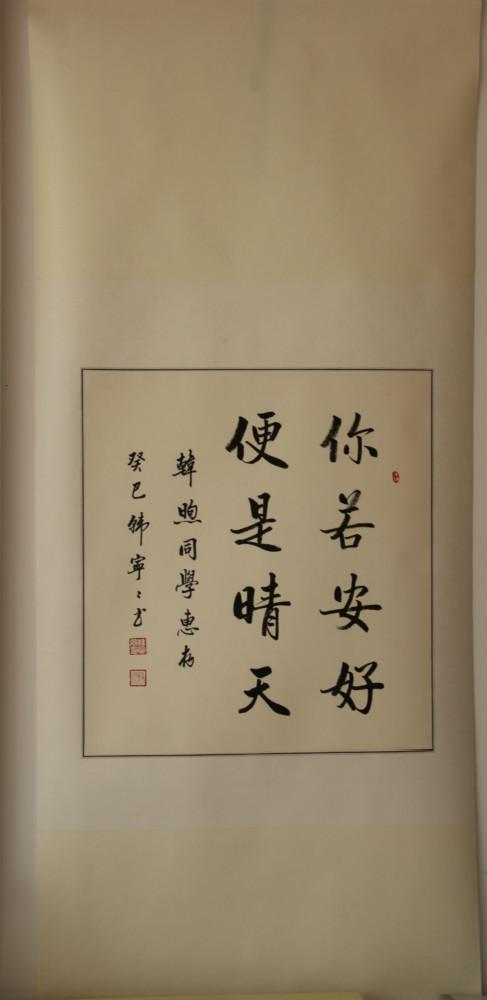 你若安好
便是晴天
韓煦同學惠存
癸巳韩寧〻书